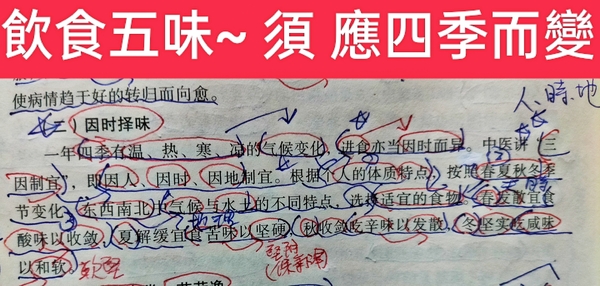 飲食五味~ 須 應四季而變
使病情趋于好的转归而向愈。
人、時、地
二、因时择味
一年四季有温、热、寒、凉的气候变化，进食亦当因时而异。中医讲“三
因制宜”，即因人、因时、因地制宜。根据个人的体质特点，按照春夏秋冬季
节变化，东西南北中气候与水土的不同特点，选择适宜的食物。春发散宜食
酸味以收敛，夏解缓宜食苦味以坚硬，秋收敛吃辛味以发散，冬坚实吃咸味
以和软。
軟堅